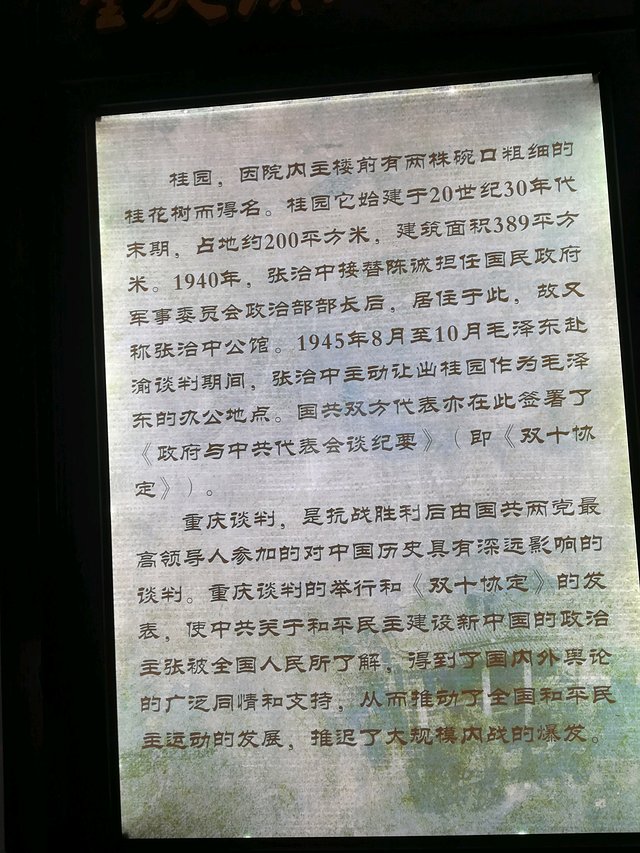 桂园，因院内主楼前有两株碗口粗细的
桂花树而得名。桂园它始建于20世纪30年代
末期，占地约200平方米，建筑面积389平方
米。1940年，张治中接替陈诚担任国民政府
军事委员会政治部部长后，居住于此，故又
称张治中公馆。1945年8月至10月毛泽东赴
渝谈判期间，张治中主动让出桂园作为毛泽
东的办公地点。国共双方代表亦在此签署了
《政府与中共代表会谈纪要》（即《双十协
定》）。
重庆谈判，是抗战胜利后由国共两党最
高领导人参加的对中国历史具有深远影响的
谈判。重庆谈判的举行和《双十协定》的发
表，使中共关于和平民主建设新中国的政治
主张被全国人民所了解，得到了国内外舆论
的广泛同情和支持，从而推动了全国和平民
主运动的发展，推迟了大规模内战的爆发。